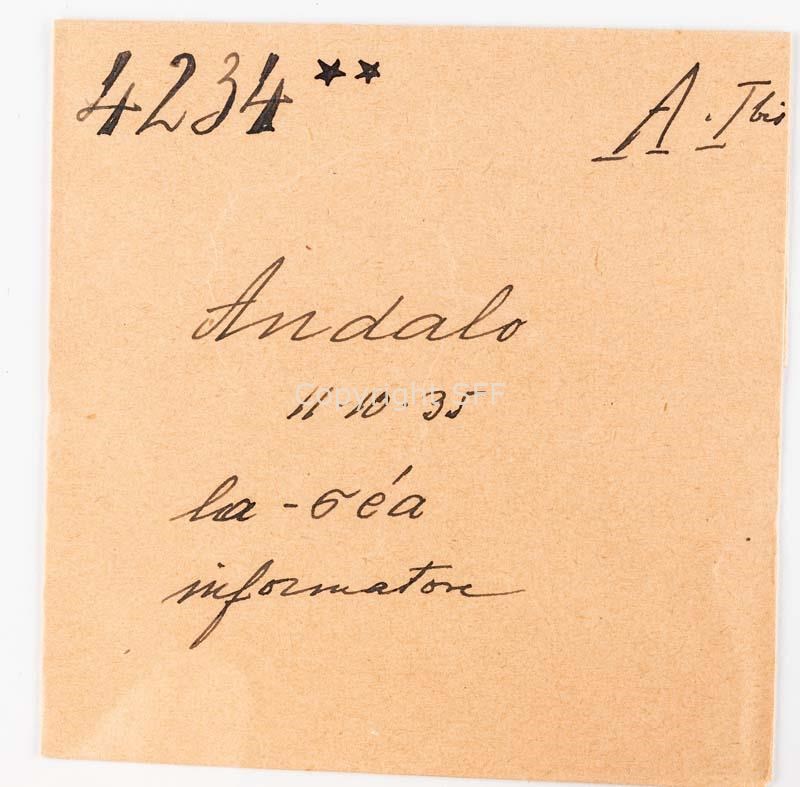 4234**
A. I bis
Andalo
11-10-35
la-σéa
informatore
Copyright SFF